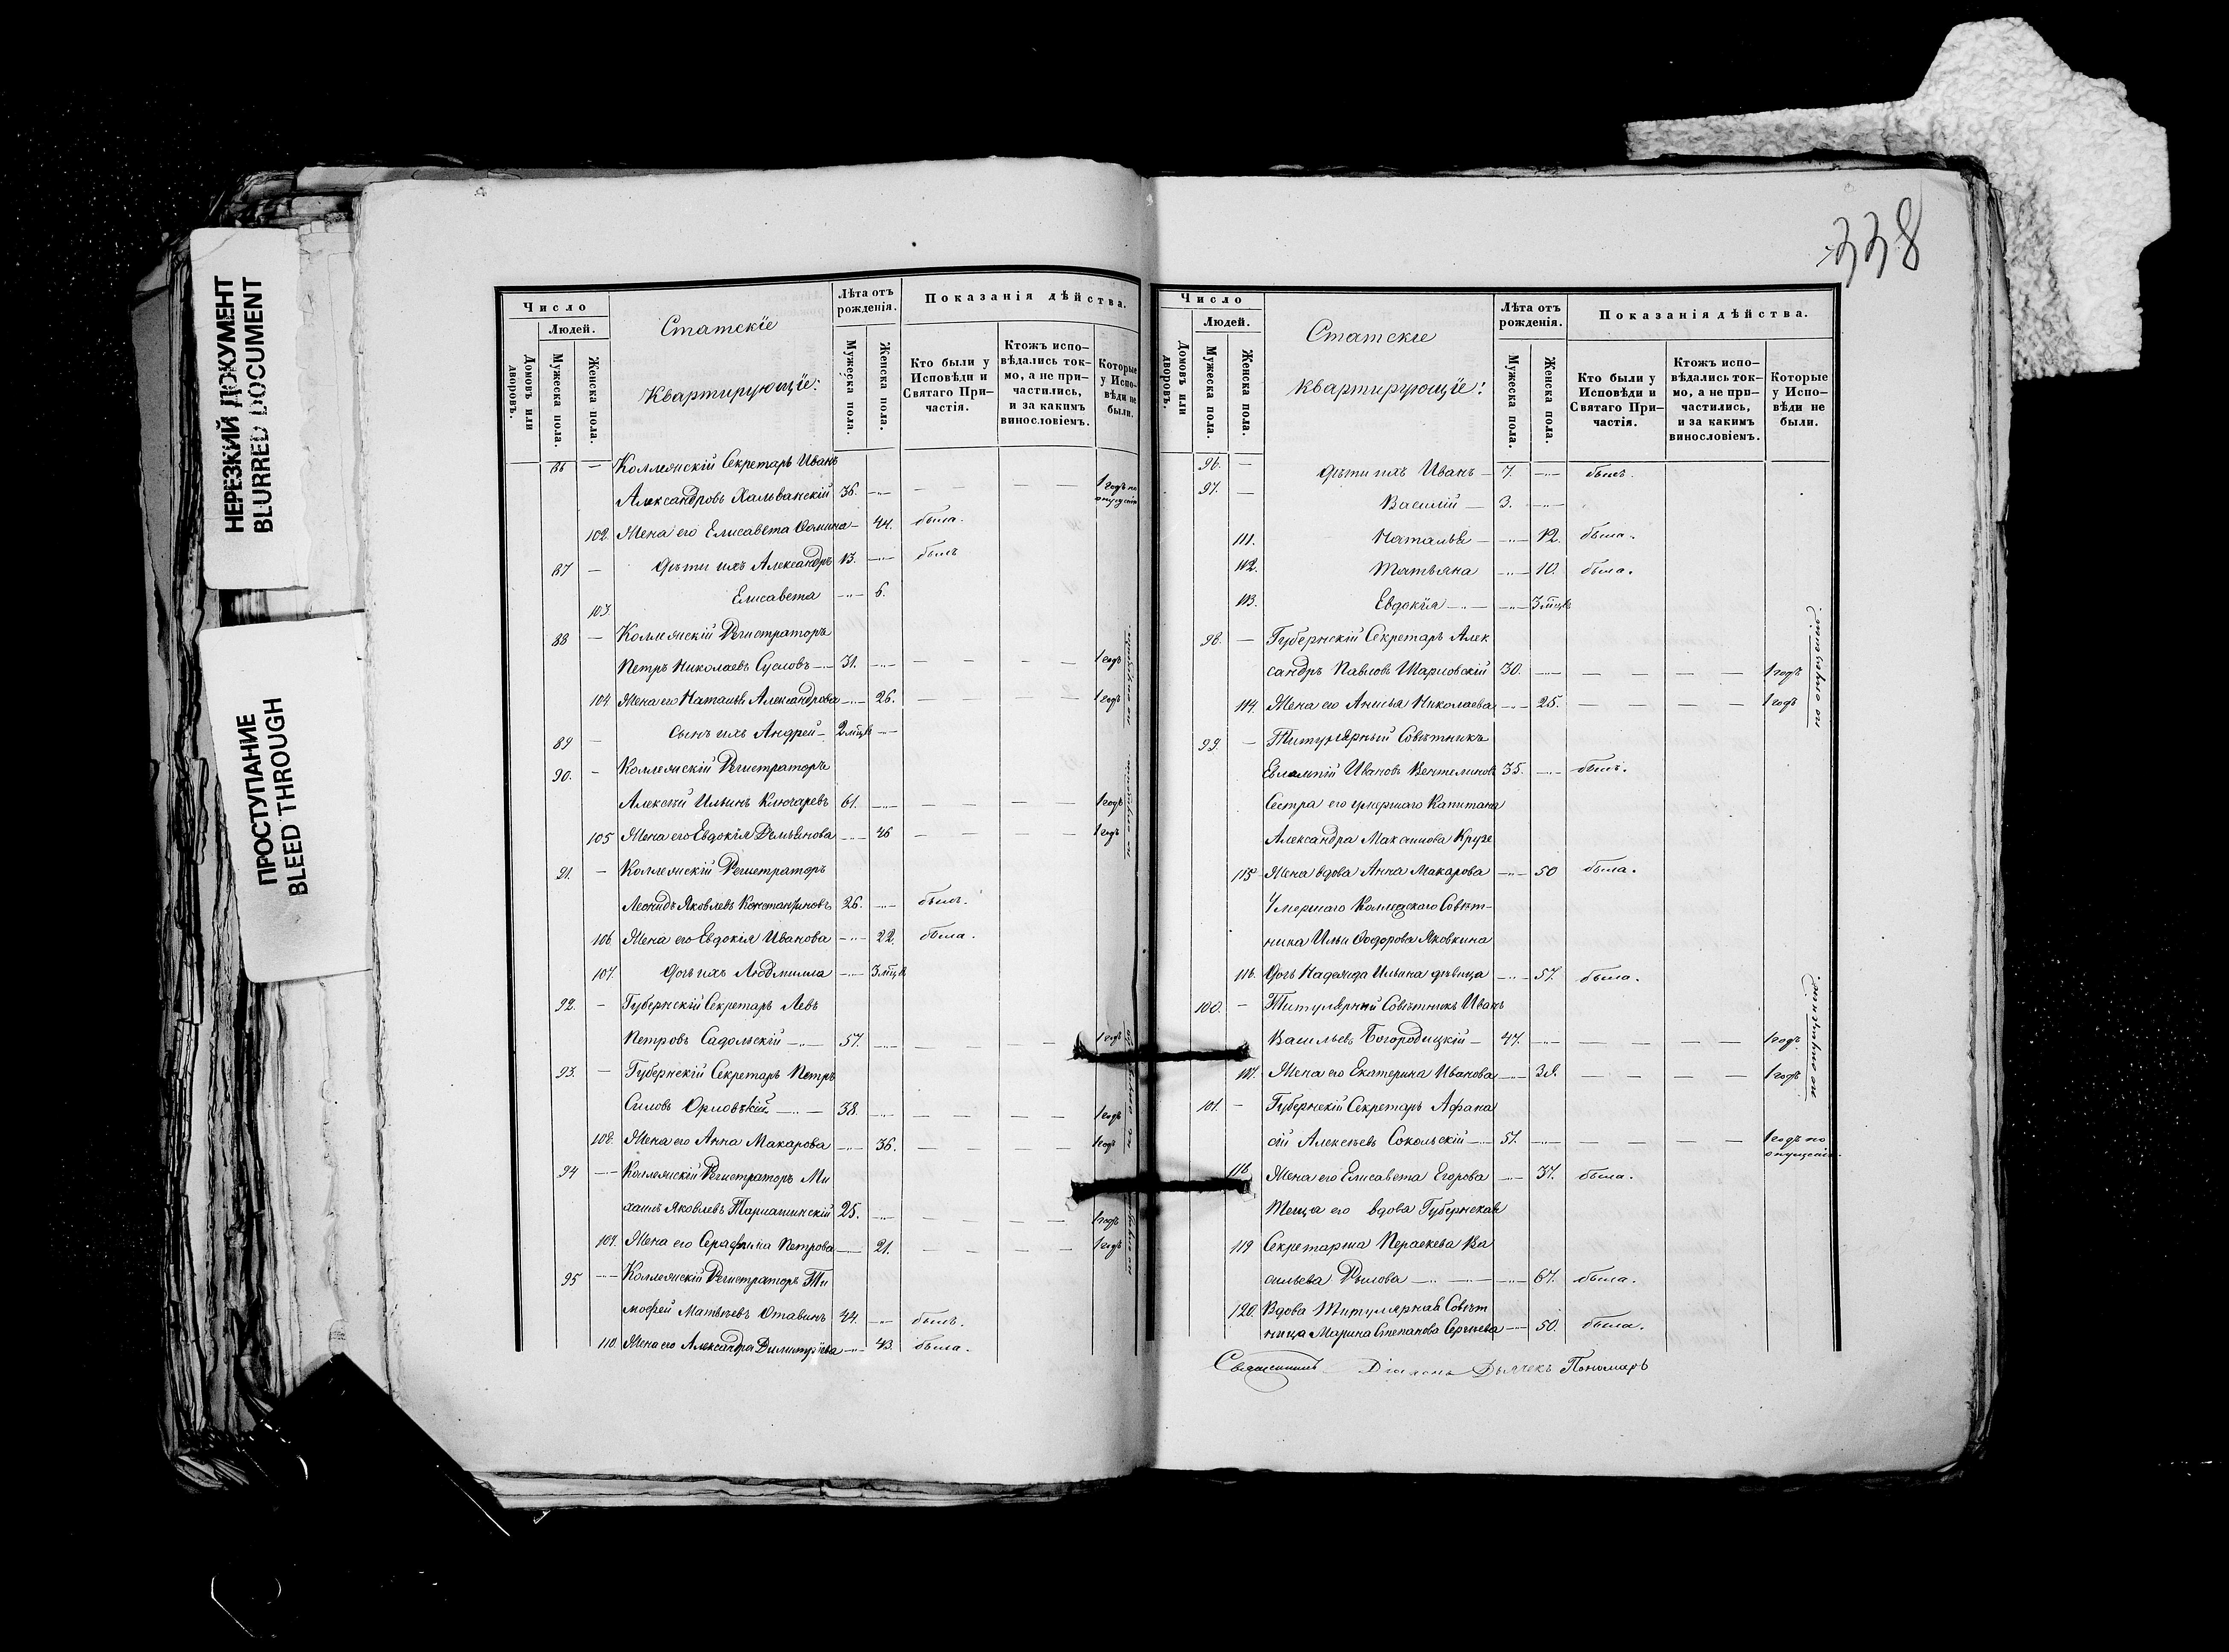 НЕРЕЗКИЙ ДОКУМЕНТ
BLURRED DOCUMENT
ПРОСТУПАНИЕ
BLEED THROUGH
Число
Людей.
Домовъ или дворовъ.
Мужеска пола.
Женска пола.
Статскіе
Квартирующіе:
Лѣта отъ рожденія.
Мужеска пола.
Женска пола.
Показанія дѣйства.
Кто были у Исповѣди и Святаго Причастія.
Ктожъ исповѣдались токмо, а не причастились, и за какимъ винословіемъ.
Которые у Исповѣди не были.
86 — Коллежскій Секретарь Иванъ
Александровъ Хальванскій 36. — 1 годъ по опущенію
102. Жена его Елисавета Фомина — 44. была.
87 — Дѣти ихъ Александръ 13. — былъ
103. Елисавета — 6.
88 — Коллежскій Регистраторъ
Петръ Николаевъ Сусловъ — 31. — 1 годъ
104 Жена его Наталья Александрова — 26. 1 годъ
по опущенію.
89 — Сынъ ихъ Андрей — 2 мѣцъ —
90. — Коллежскій Регистраторъ
Алексѣй Ильинъ Ключаревъ 61. — 1 годъ
105 Жена его Евдокія Демьянова — 46 1 годъ
по опущенію.
91. — Коллежскій Регистраторъ
Леонидъ Яковлевъ Константиновъ 26. — былъ.
106. Жена его Евдокія Иванова — 22. была.
107. Дочь ихъ Людмилла — 3 мѣцъ
92. — Губернскій Секретарь Левъ
Петровъ Садольскій — 57. — 1 годъ
93. — Губернскій Секретарь Петръ
Силовъ Орловскій — 38. — 1 годъ
108. Жена его Анна Макарова — 36. 1 годъ
94 — Коллежскій Регистраторъ Ми
хаилъ Яковлевъ 25. — 1 годъ
109. Жена его Серафима Петрова — 21. 1 годъ
95 — Коллежскій Регистраторъ Ти
мофей Матвѣевъ Отавинъ 44. — былъ.
110. Жена его Александра Димитріева — 43. была.
338
Число
Людей.
Домовъ или дворовъ.
Мужеска пола.
Женска пола.
Статскіе
квартирующіе:
Лѣта отъ рожденія.
Мужеска пола.
Женска пола.
Показанія дѣйства.
Кто были у Исповѣди и Святаго Причастія.
Ктожъ исповѣдались токмо, а не причастились, и за какимъ винословіемъ.
Которые у Исповѣди не были.
96. — Дѣти ихъ Иванъ — 7. — былъ.
97. — Василій — 3. —
111. Наталья — 12. была.
112. Татьяна — 10. была.
113. Евдокія — 3 мѣцъ
98. — Губернскій Секретарь Алек
сандръ Павловъ Шарловскій 30. — 1 годъ
114. Жена его Анисья Николаева — 25. 1 годъ
по опущенію.
99. — Титулярный Совѣтникъ
Евлампій Ивановъ 35. — былъ.
Сестра его умершаго Капитана
Александра Максимова Крузе
115 Жена вдова Анна Макарова — 50 была.
Умершаго Коллежскаго Совѣт-
ника Ильи Ѳеодорова Яковкина
116. Дочь Надежда Ильина дѣвица — 57. была.
100. — Титулярный Совѣтникъ Иванъ
Васильевъ Богородицкій — 47. — 1 годъ
117. Жена его Екатерина Иванова — 38. 1 годъ
по опущенію.
101. — Губернскій Секретарь Афана
сій Алексѣевъ Сокольскій — 51. — 1 годъ по опущенію.
118 Жена его Елисавета Егорова — 37. была.
Теща его вдова Губернская
119 Секретарша Параскева Ва
сильева Рылова — 67. была.
120. Вдова Титулярная Совѣт
ница Марина Степанова Сергѣева — 50. была.
Священникъ Діаконъ Дьячекъ Пономарь